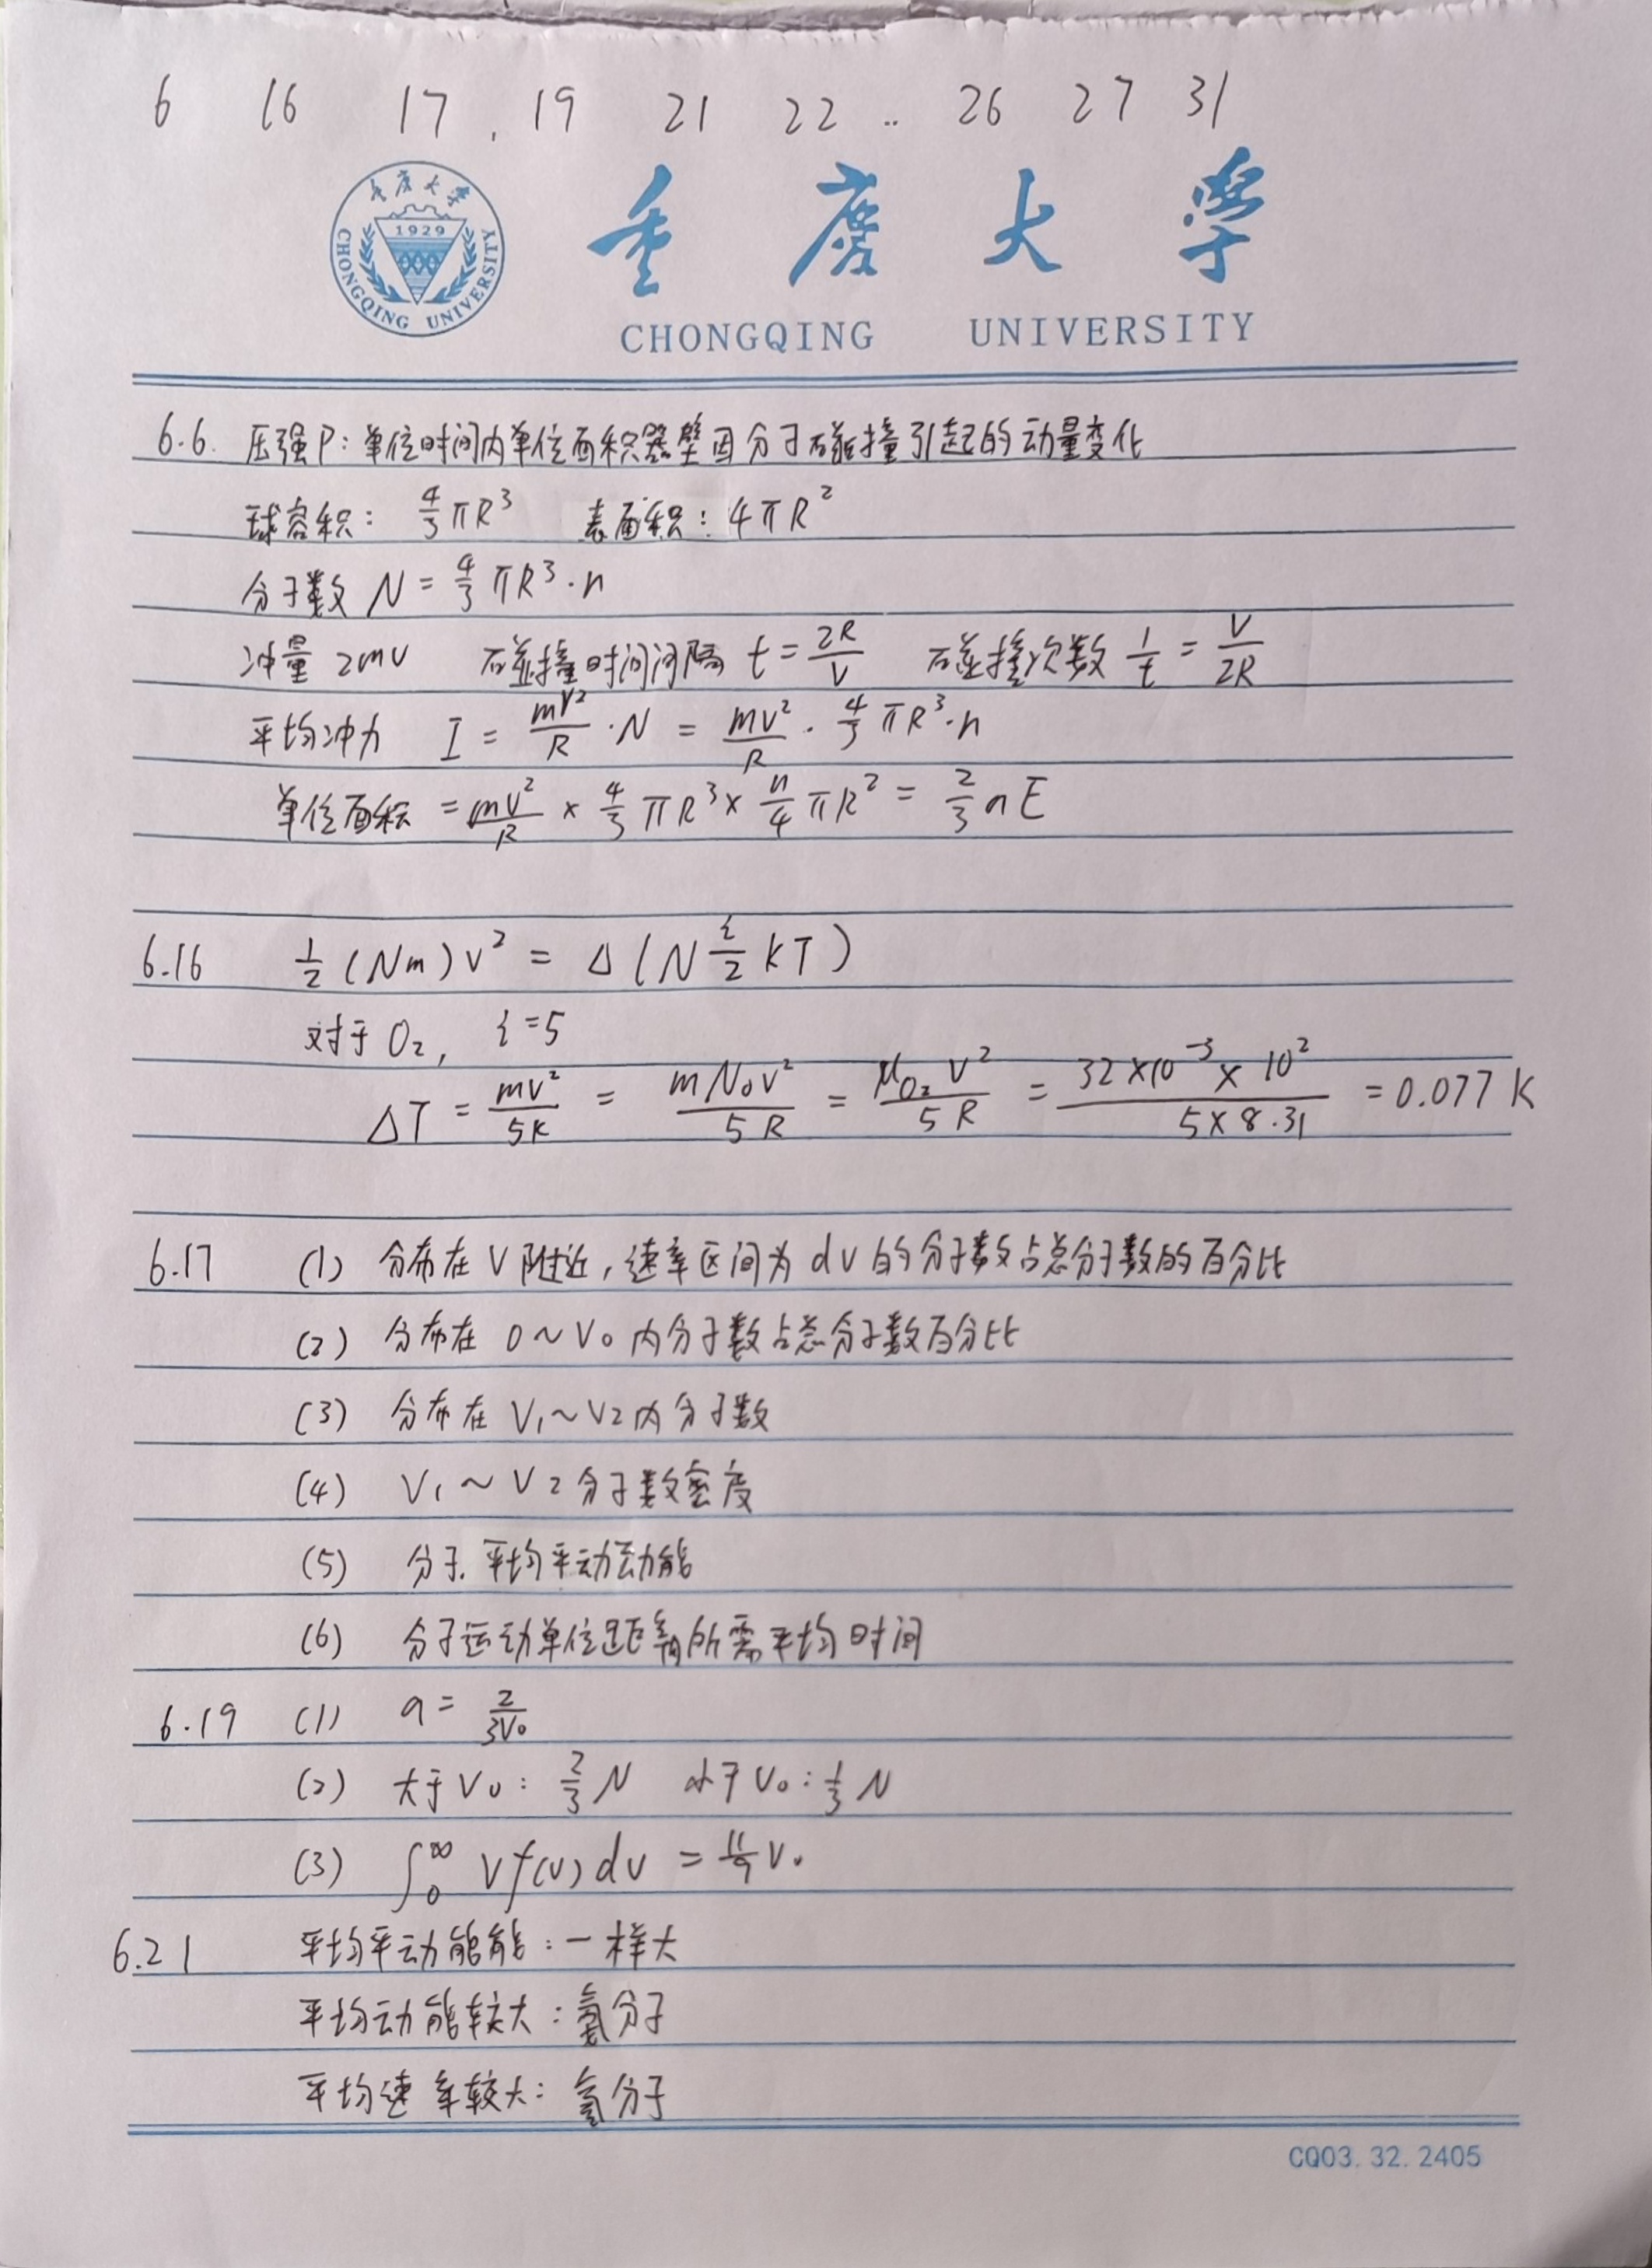 6 16 17 . 19 21 22 .. 26 27 31
重庆大学
1929
CHONGQING UNIVERSITY
重庆大学
CHONGQING UNIVERSITY
6.6. 压强P：单位时间内单位面积器壁因分子碰撞引起的动量变化
球容积： 4/3 πR³ 表面积：4πR²
分子数 N = 4/3 πR³·n
冲量 2mv 碰撞时间间隔 t = 2R/V 碰撞次数 1/t = V/2R
平均冲力 I = mv²/R · N = mv²/R · 4/3 πR³·n
单位面积 = mv²/R × 4/3 πR³ × n/4 πR² = 2/3 nE
6.16 1/2 (Nm) v² = Δ (N i/2 kT)
对于 O₂, i = 5
ΔT = mv²/5k = mN₀v²/5R = μO₂ v²/5R = 32×10⁻³×10²/5×8.31 = 0.077 K
6.17 (1) 分布在 V 附近，速率区间为 dv 的分子数占总分子数的百分比
(2) 分布在 0~V₀ 内分子数占总分子数百分比
(3) 分布在 V₁~V₂ 内分子数
(4) V₁~V₂ 分子数密度
(5) 分子平均平动动能
(6) 分子运动单位距离所需平均时间
6.19 (1) a = 2/3V₀
(2) 大于 V₀: 2/3 N 小于 V₀: 1/3 N
(3) ∫₀^∞ V f(v) dv = 11/9 V₀
6.21 平均平动能能：一样大
平均动能较大：氨分子
平均速率较大：
CQ03.32.2405